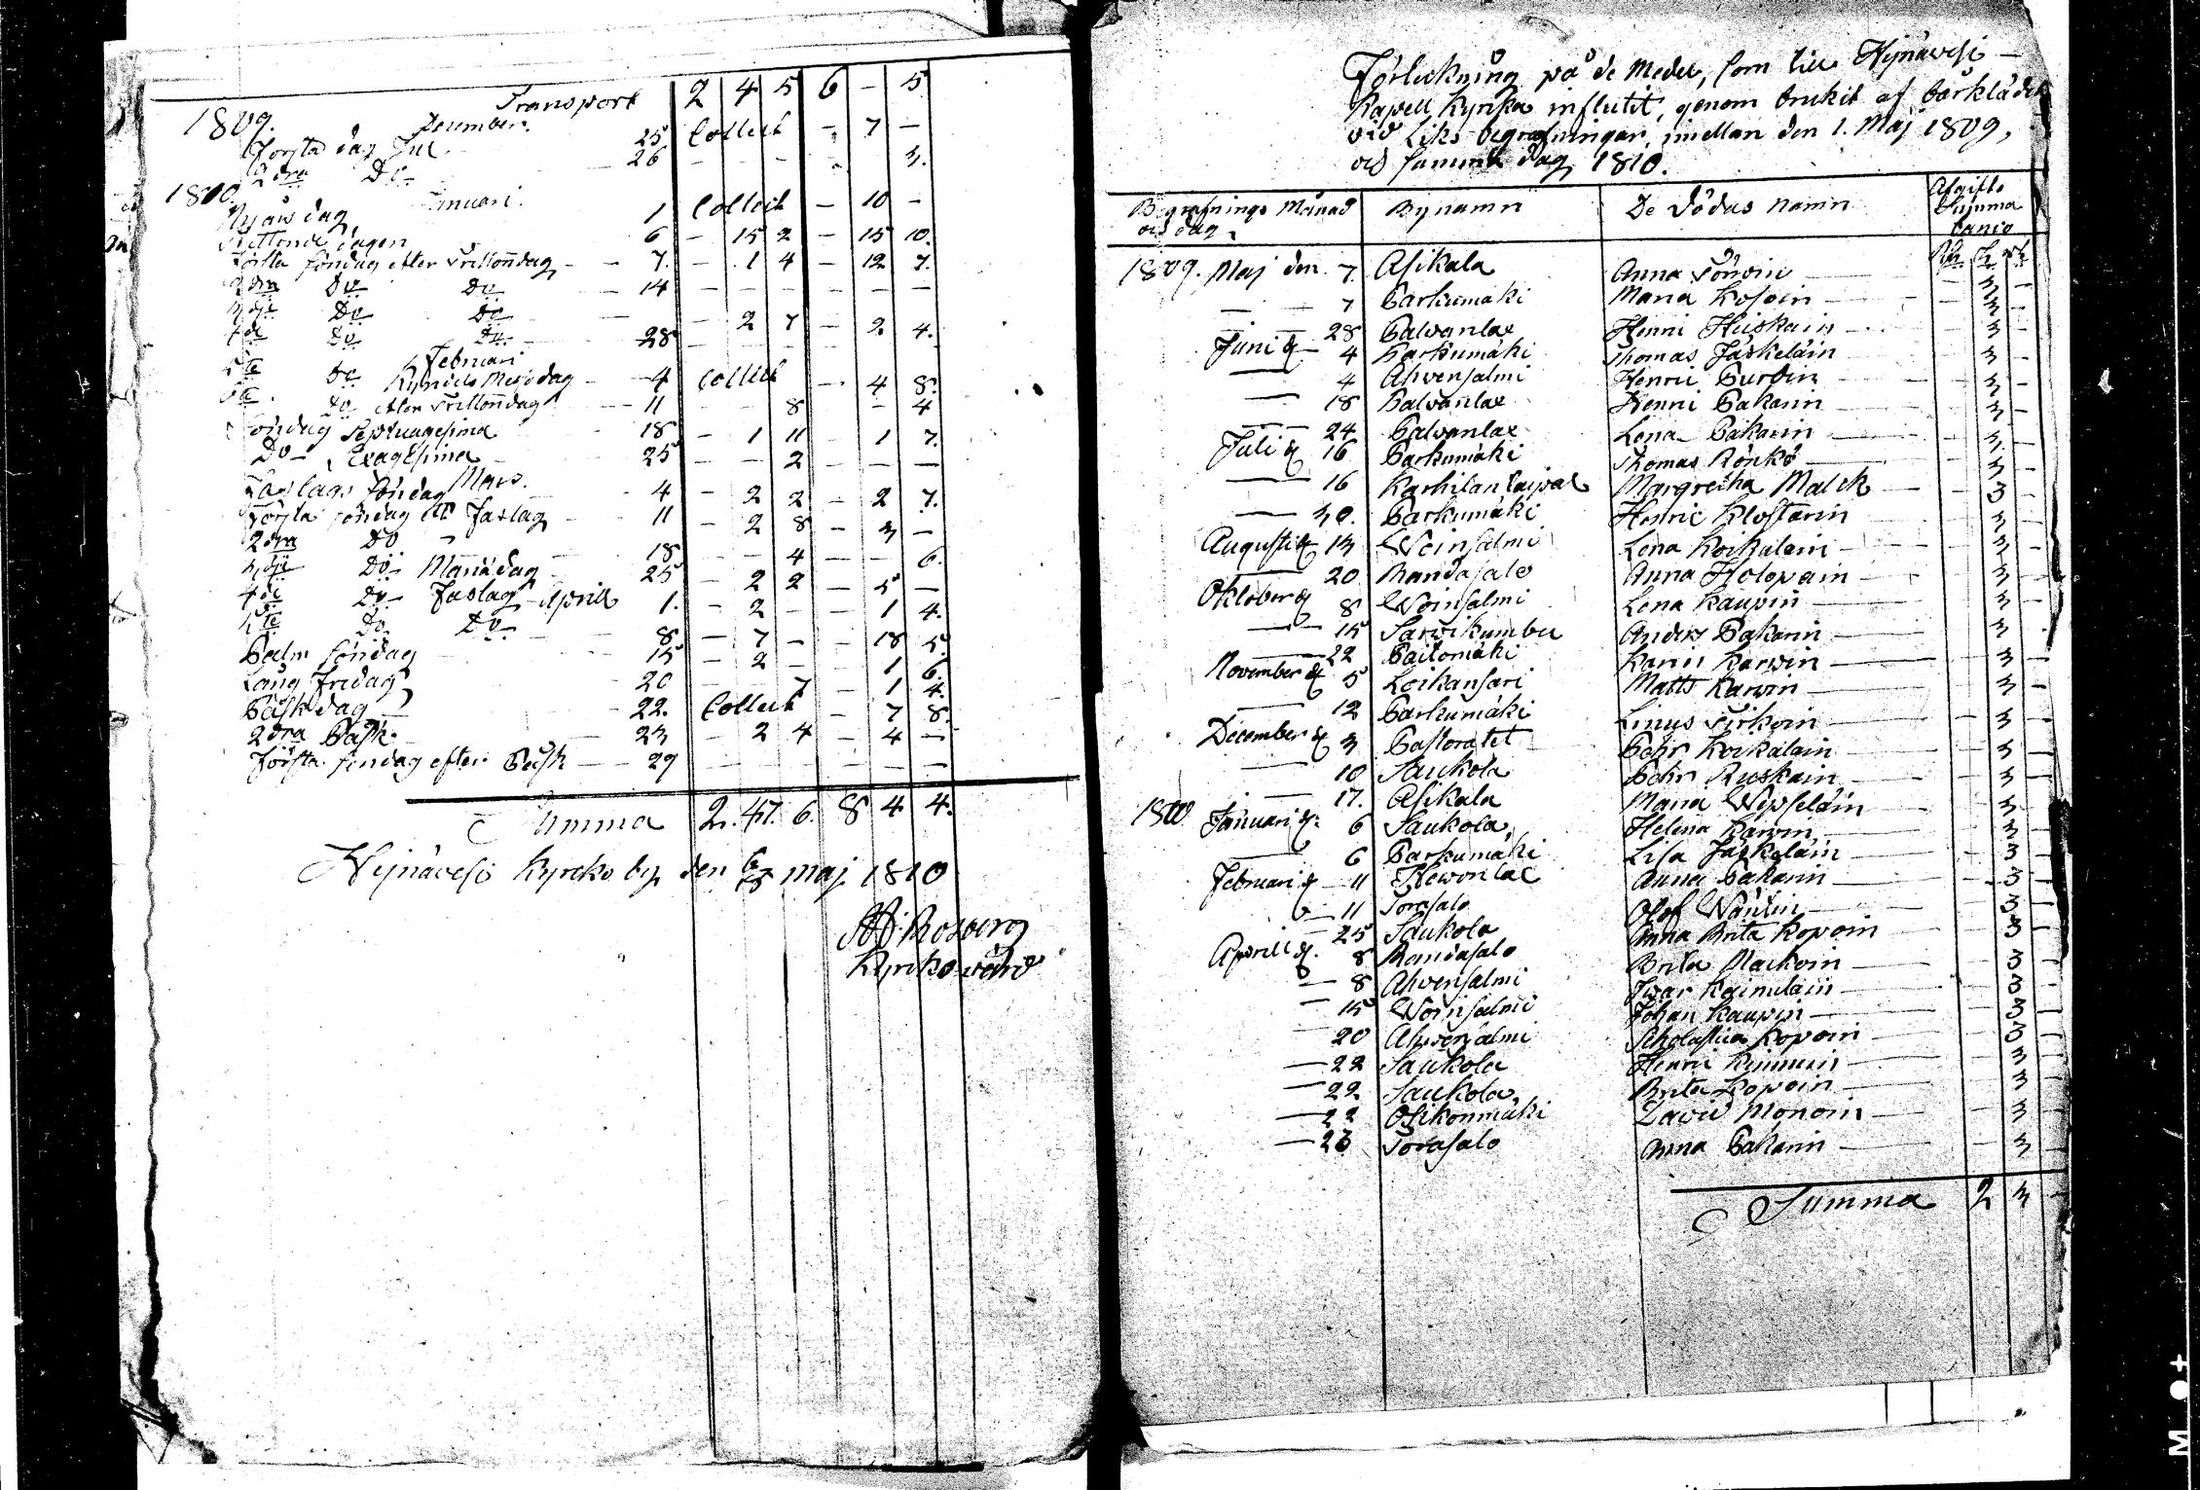 Transport 2 4 5 6 - 5.
1809. December.
Första dag Jul 25 Collect - 7 -
2dra Do - 26 - - - - - 3.
1810. Januari.
Nyårsdag 1 Collect - 10 -
Trettonde dagen 6 - 15 2 - 15 10.
Första söndag efter Trettondag - - 7. - 1 4 - 12 7.
2dra Do Do - 14 - - - - - -
3dje Do Do - - 2 7 - 2 4.
4de Do Do - 28 - - - - - -
Februari
5te Do Kyndels Messodag - 4 Collect - 4 8.
Do efter Trettondag - 11 - - 8 - - 4
Söndag Septuagesima 18 - 1 11 - 1 7.
Do - Sexagesima 25 - - 2 - - -
Mars.
Fastlags söndag - 4 - 2 2 - 2 7.
Första söndag i Fastlag - 11 - 2 8 - 3 -
2dra Do - 18 - - 4 - - 6.
3dje Do - Månadag - 25 - 2 2 - 5 -
4de Do - Fastlag Aprill 1. - 2 - - 1 4.
5te Do Do - 8 - 7 - - 18 5.
Palm söndag 15 - 2 - - 1 6.
Lång fredag 20 - - 7 - 1 4.
Påskdag - 22. Collect - 7 8.
2dra Påsk - 23 - 2 4 - 4 -
Första söndag efter Påsk - 29 - - - - - -
Summa 2. 47. 6. 8 4 4.
Hejnävesi Kyrcko by den maj 1810
Rosberg
Kyrkovärd
Förteckning på de Medel, som till Hejnävesi
Kapell Kyrka influtit, genom brukit af bårklädet
vid Liks begrafningar, imellan den 1. Maj 1809,
och samma dag 1810.
Begrafnings Månad och dag. Bynamn De Dödas namn Afgifts Summa banco
1809. Maj den 7. Asikala Anna - 3 -
- - 7 Barkumäki Maria Kosoin - 3 -
- 28 Palvanlax Henric Huiskain - 3 -
Juni d. 4 Karkumäki Thomas Jäskeläin 3 -
- 4 Ahvensalmi Henric Pursin - 3 -
- 18 Palvanlax Henric Pakarin - 3 -
- 24 Palvanlax Lena Pakarin - 3 -
Juli d. 16 Parkumäki Thomas Rönkö - 3 -
- 16 Karhilanlaipal Margretha Malck - 3 -
- 30. Parkumäki Henric Klostarin - 3 -
Augusti d. 13 Woinsalmi Lena Koikalain - 3 -
- 20 Randasalo Anna Holopain - 3 -
Oktober d. 8 Woinsalmi Lena Kaupin - 3 -
- 15 Sarvikumbu Anders Pakarin - 3 -
- 22 Paitomäki Karin Karvin - 3 -
November d. 5 Loikansari Matts Karvin - 3 -
- 12 Parkumäki Linus Tirkoin - 3 -
December d. 3 Pastoratet Pehr Koikalain - 3 -
- 10 Saukola Pehr Ruskain - 3 -
- 17. Asikala Maria Wepsäläin - 3 -
1810 Januari d. 6 Saukola Helena Karvin - 3 -
- 6 Parkumäki Lisa Jäskeläin - 3 -
Februari d. 11 Hevonlax Anna Pakarin - 3 -
- 11 Torasalo Olof - 3 -
- 25 Saukola Anna Brita Kopoin - 3 -
Aprill d. 8 Randasalo Brita - 3 -
- 8 Ahvensalmi Ivar Kainulain - 3 -
- 15 Woinsalmi Johan Kaupin - 3 -
- 20 Ahvensalmi Scholastica Kopoin - 3 -
- 22 Saukola Henric - 3 -
- 22 Saukola Brita Kopoin - 3 -
- 22 Osikonmäki David Monoin - 3 -
- 23 Torasalo Anna Pakarin - 3 -
Summa 2 3 -